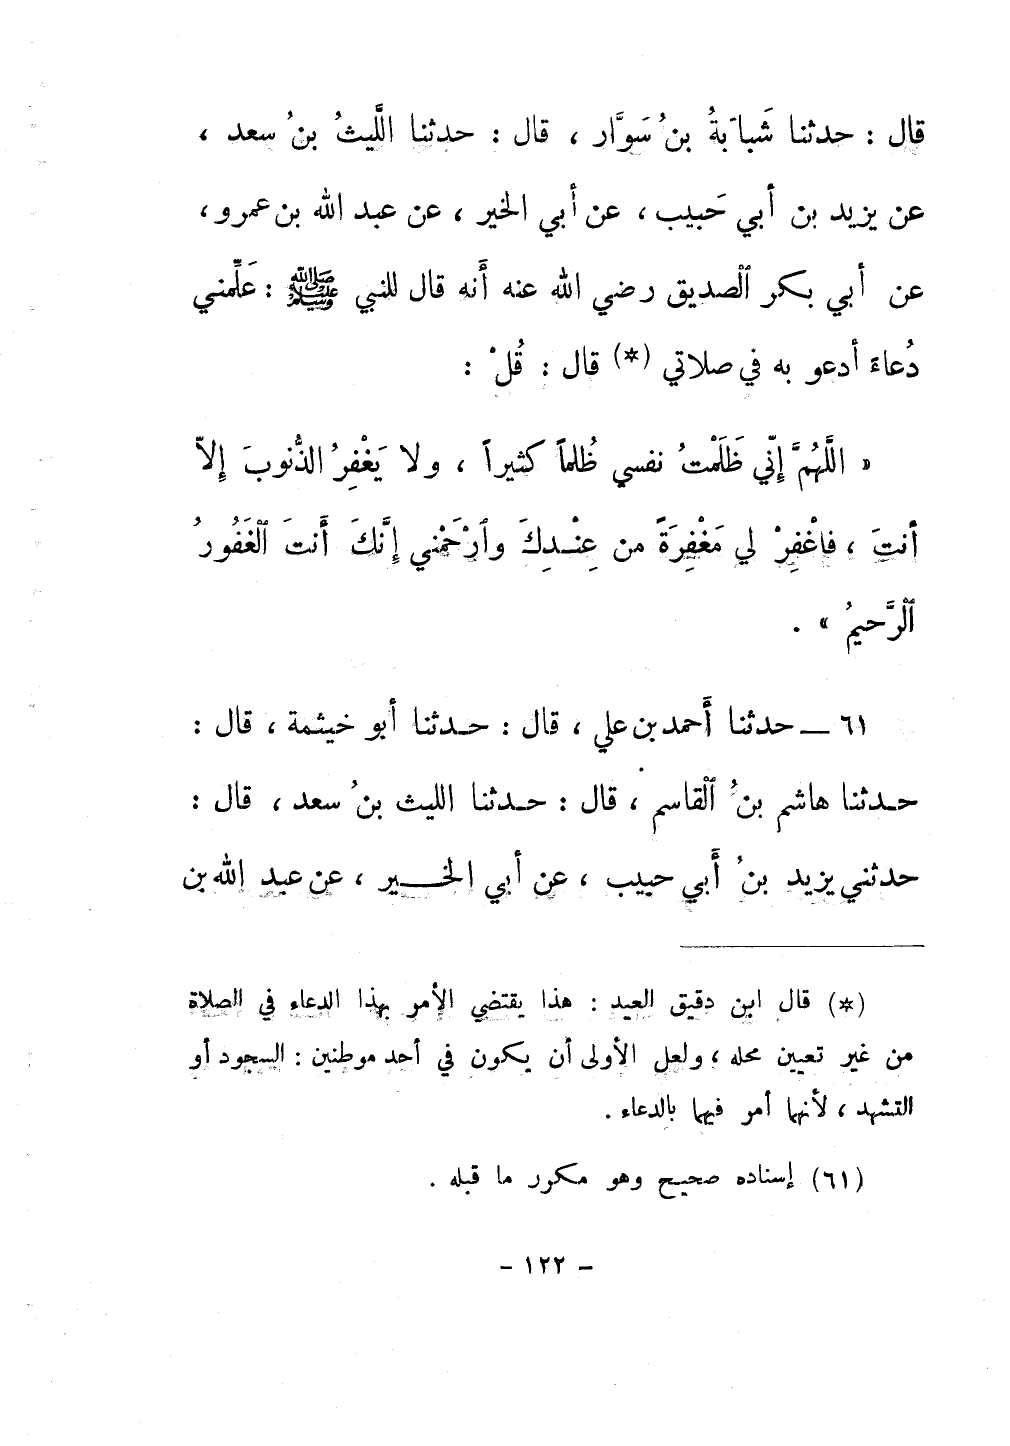 قال : حدثنا شَبابَةُ بنُ سَوَّار ، قال : حدثنا اللَّيثُ بنُ سعد ،
عن يزيد بن أبي حَبيب ، عن أبي الخير ، عن عبد الله بن عمرو ،
عن أبي بكر ٱلصديق رضي الله عنه أَنه قال للنبي ﷺ : عَلِّمني
دُعاءً أدعو به في صلاتي (*) قال : قُلْ :
« اللَّهُمَّ إِنِّي ظَلَمْتُ نفسي ظُلماً كثيراً ، ولا يَغْفِرُ الذُّنوبَ إِلاّ
أنتَ ، فاغْفِرْ لي مَغْفِرَةً من عِنْدِكَ وٱرْحَمْني إِنَّكَ أَنتَ ٱلغَفُورُ
ٱلرَّحيمُ » .
٦١ — حدثنا أَحمد بن علي ، قال : حدثنا أبو خيثمة ، قال :
حدثنا هاشم بنُ ٱلقاسم ، قال : حدثنا الليث بنُ سعد ، قال :
حدثني يزيد بنُ أَبي حبيب ، عن أبي الخير ، عن عبد الله بن
(*) قال ابن دقيق العيد : هذا يقتضي الأمر بهذا الدعاء في الصلاة
من غير تعيين محله ، ولعل الأولى أن يكون في أحد موطنين : السجود أو
التشهد ، لأنهما أمر فيهما بالدعاء .
(٦١) إسناده صحيح وهو مكرر ما قبله .
- ١٢٢ -